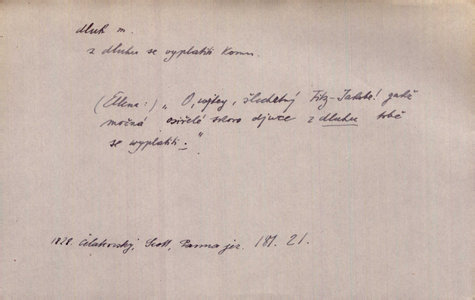 dluh m.
z dluhu se vyplatiti komu.
(Ellena:) „O, vždy, šlechetný Fitz-Jakube! gakž
možná osiřelé divce z dluhu tobě
se wyplatiti."
1828 Čelakovský, Scott, Panna jez. 181. 21.